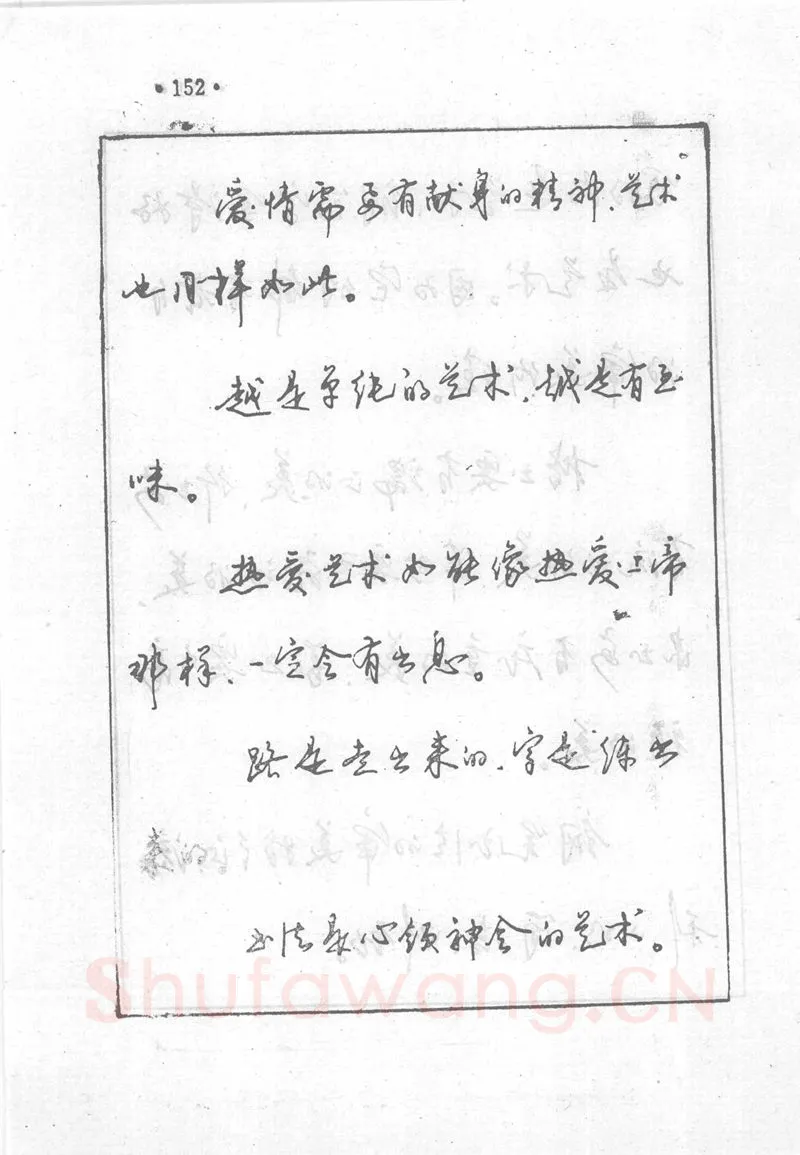 ·152·
爱情需要有献身的精神、艺术
也同样如此。
越是单纯的艺术，越是有至
味。
热爱艺术如能像热爱上帝
那样、一定会有出息。
路是走出来的，字是练出
来的
书法是心领神会的艺术。
Shufawang.CN